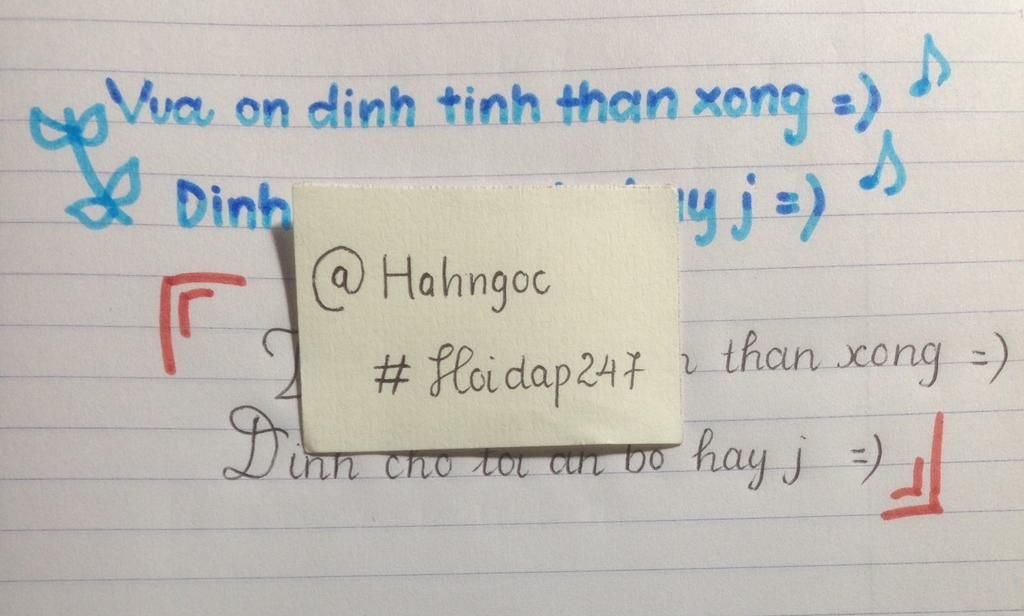 Vua on dinh tinh than xong =)
Dinh ay j =)
@Hahngoc
#Hoidap247
than xong =)
Dinh cho toi an bo hay j =)